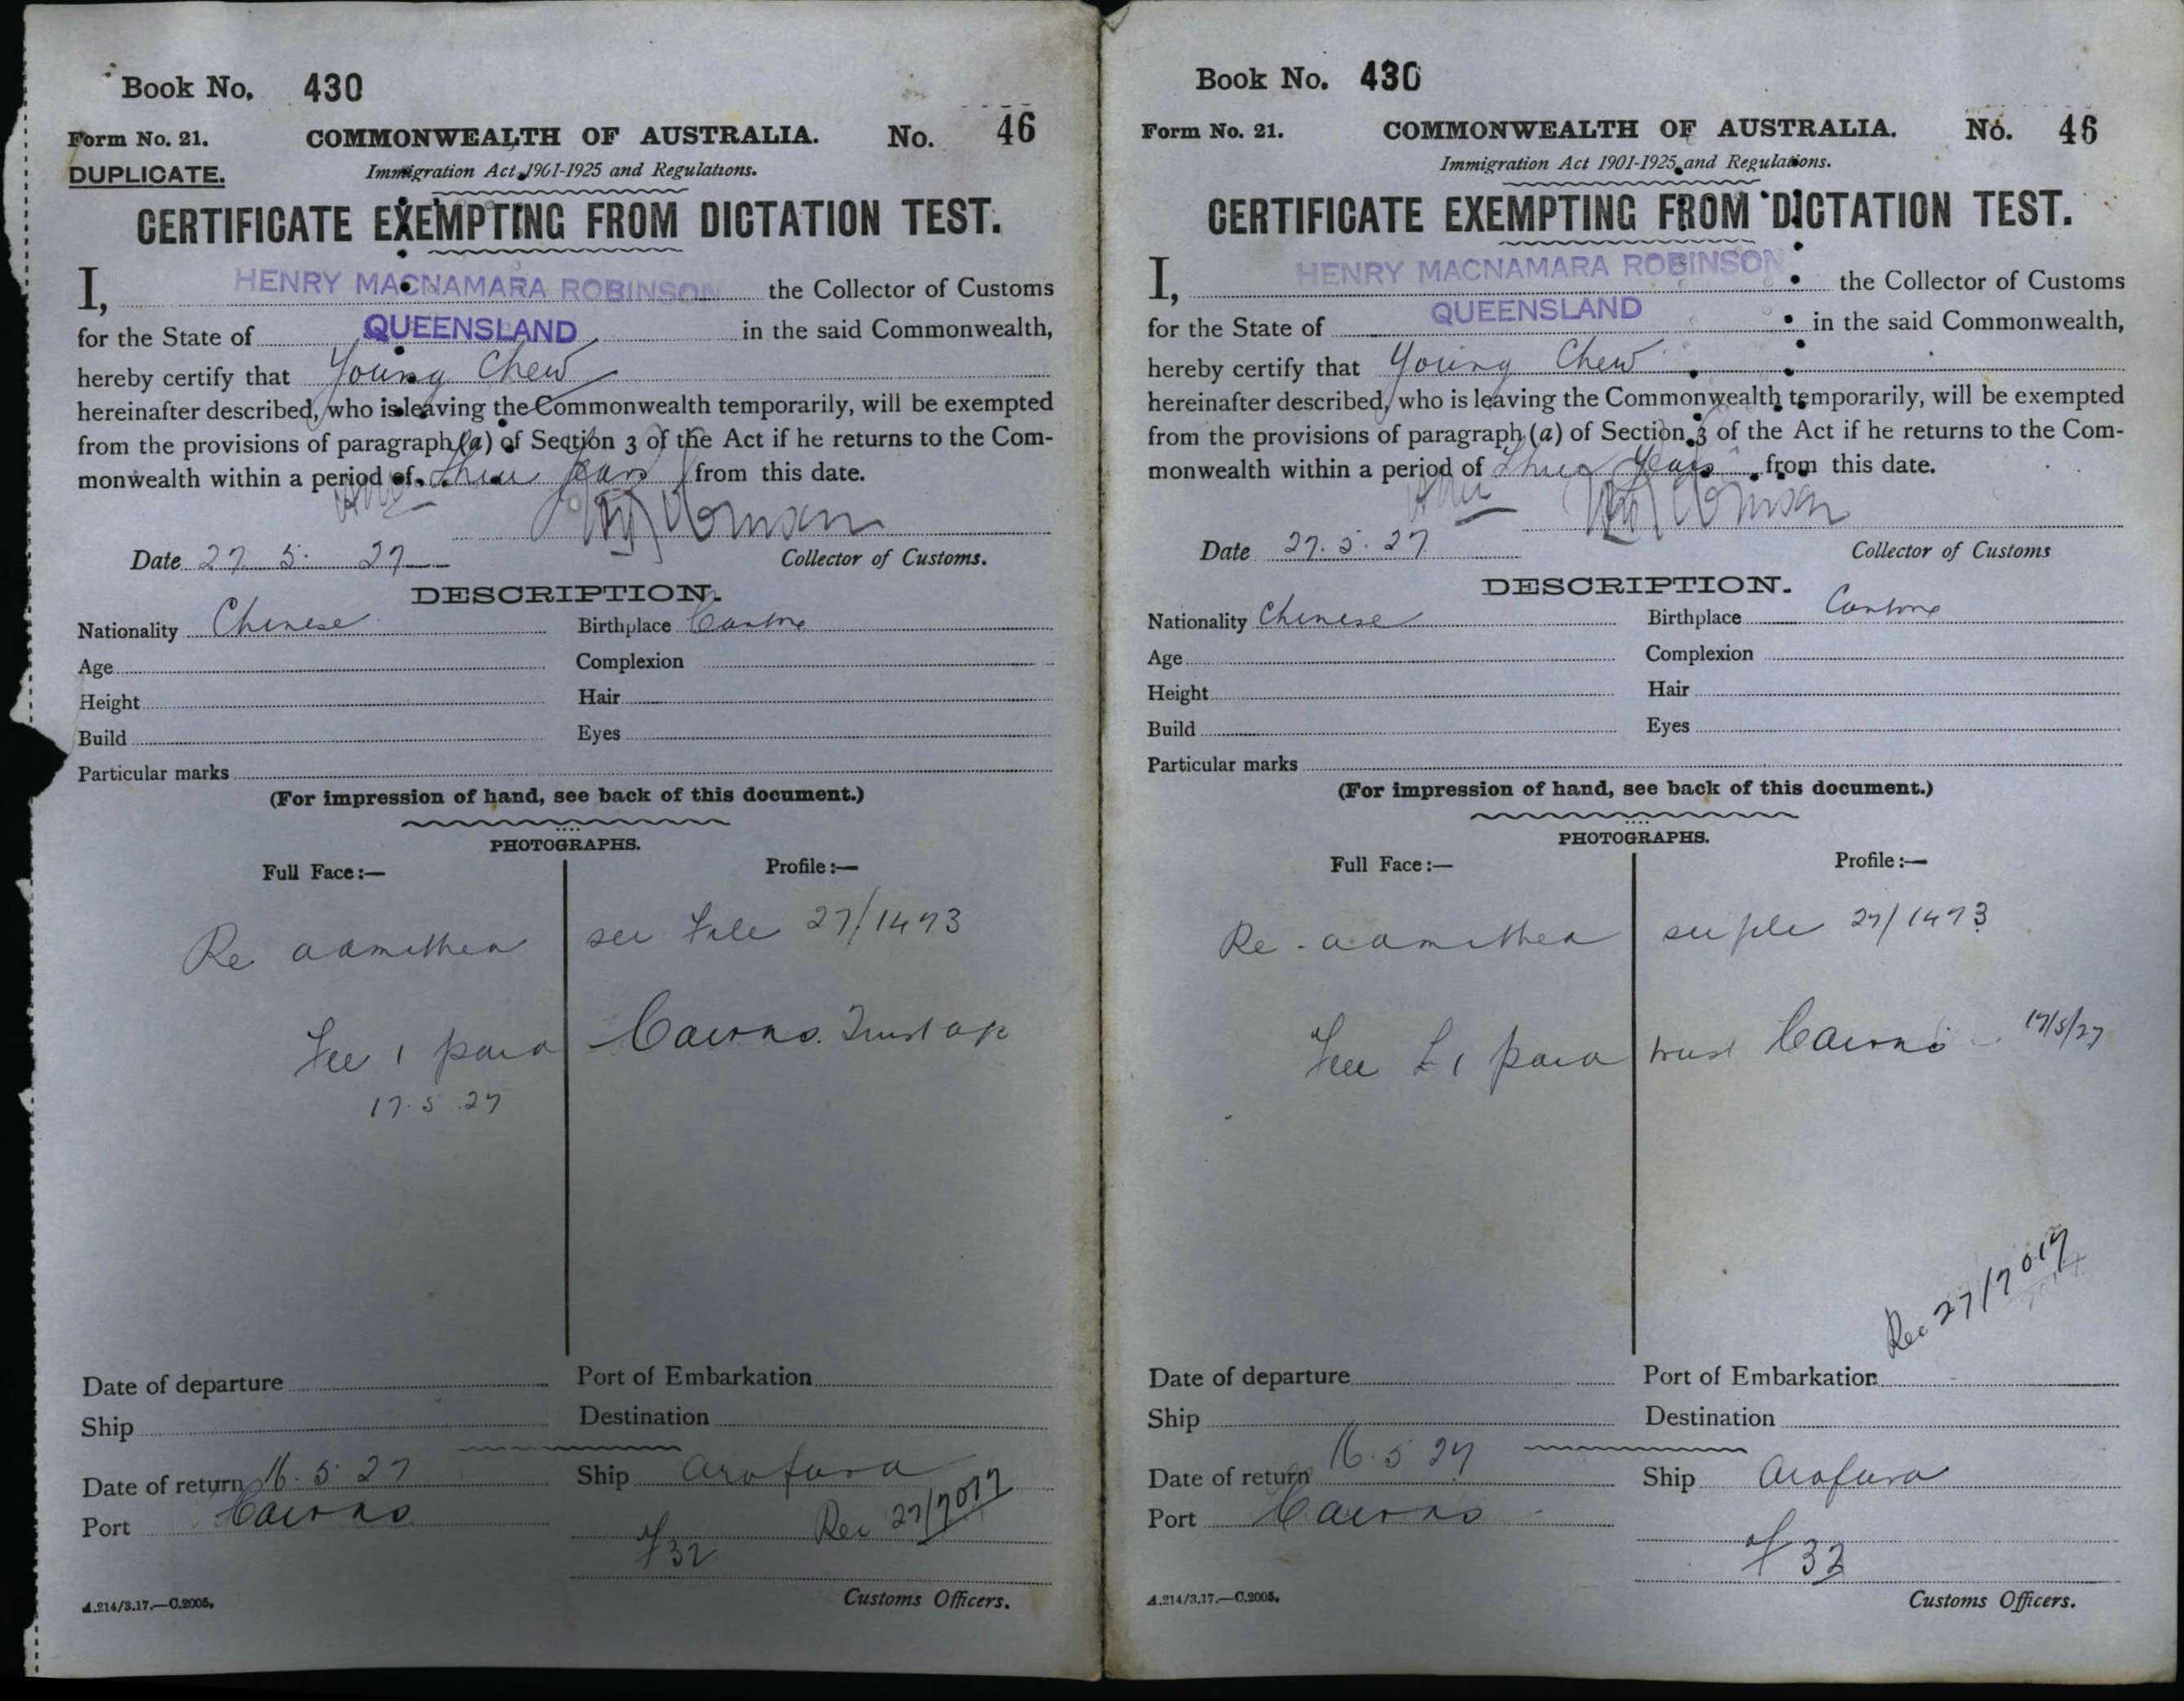 Book No. 430
Form No. 21. COMMONWEALTH OF AUSTRALIA. No. 46
DUPLICATE. Immigration Act 1901-1925 and Regulations.
CERTIFICATE EXEMPTING FROM DICTATION TEST.
I, HENRY MACNAMARA ROBINSON the Collector of Customs
for the State of QUEENSLAND in the said Commonwealth,
hereby certify that Young Chew
hereinafter described, who is leaving the Commonwealth temporarily, will be exempted
from the provisions of paragraph (a) of Section 3 of the Act if he returns to the Com-
monwealth within a period of three years from this date.
Date 27 5. 27 Collector of Customs.
DESCRIPTION.
Nationality Chinese Birthplace Canton
Age Complexion
Height Hair
Build Eyes
Particular marks
(For impression of hand, see back of this document.)
PHOTOGRAPHS.
Full Face:— Profile:—
Re admitted see File 27/1473
Fee 1 paid Cairns. Trust a/c
17.5.27
Date of departure Port of Embarkation
Ship Destination
Date of return 16.5.27 Ship Arafura
Port Cairns Rec 27/7017
f32
A.214/3.17.—C.2005. Customs Officers.
Book No. 430
Form No. 21. COMMONWEALTH OF AUSTRALIA. No. 46
Immigration Act 1901-1925 and Regulations.
CERTIFICATE EXEMPTING FROM DICTATION TEST.
I, HENRY MACNAMARA ROBINSON the Collector of Customs
for the State of QUEENSLAND in the said Commonwealth,
hereby certify that Young Chew
hereinafter described, who is leaving the Commonwealth temporarily, will be exempted
from the provisions of paragraph (a) of Section 3 of the Act if he returns to the Com-
monwealth within a period of three years from this date.
Date 27.5.27 Collector of Customs
DESCRIPTION.
Nationality Chinese Birthplace Canton
Age Complexion
Height Hair
Build Eyes
Particular marks
(For impression of hand, see back of this document.)
PHOTOGRAPHS.
Full Face:— Profile:—
Re-admitted see file 27/1473
Fee £1 paid trust Cairns 17/5/27
Rec 27/7017
Date of departure Port of Embarkation
Ship Destination
Date of return 16.5.27 Ship Arafura
Port Cairns
f 32
A.214/3.17.—C.2005. Customs Officers.